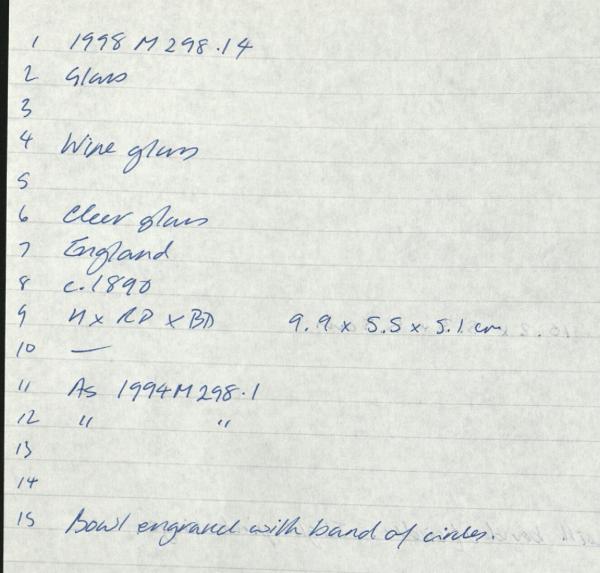 1 1998 M 298.14
2 Glass
3
4 Wine glass
5
6 Clear glass
7 England
8 c.1890
9 H x RD x BD 9.9 x 5.5 x 5.1 cm
10 —
11 As 1994 M 298.1
12 " "
13
14
15 Bowl engraved with band of circles